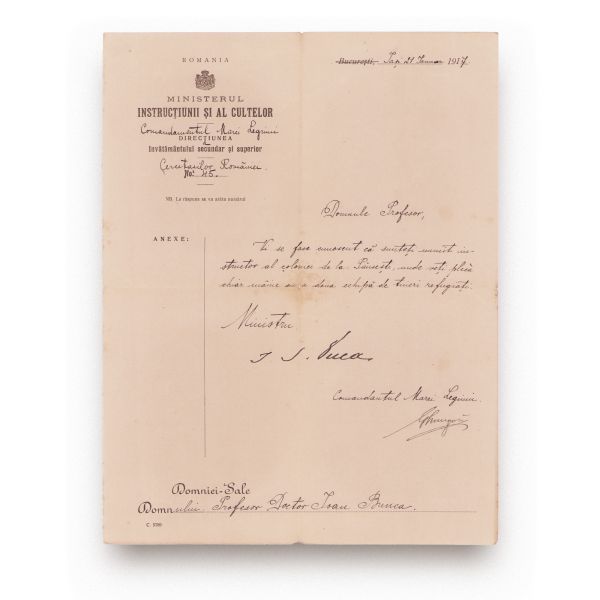 ROMANIA
MINISTERUL
INSTRUCȚIUNII ȘI AL CULTELOR
Comandamentul Marei Legiuni
DIRECȚIUNEA
Învățământului secundar și superior
Cercetarilor României
No. 45.
NB. La răspuns se va arăta numărul
București, Iași 21 Ianuar 1917
ANEXE:
Domnule Profesor,
Vi se face cunoscut că sunteți numit in-
structor al coloniei de la unde veți pleca
chiar mâine cu a doua echipă de tineri refugiați.
Ministru
Comandantul Marei Legiuni.
Domniei-Sale
Domnului Profesor Doctor Ioan